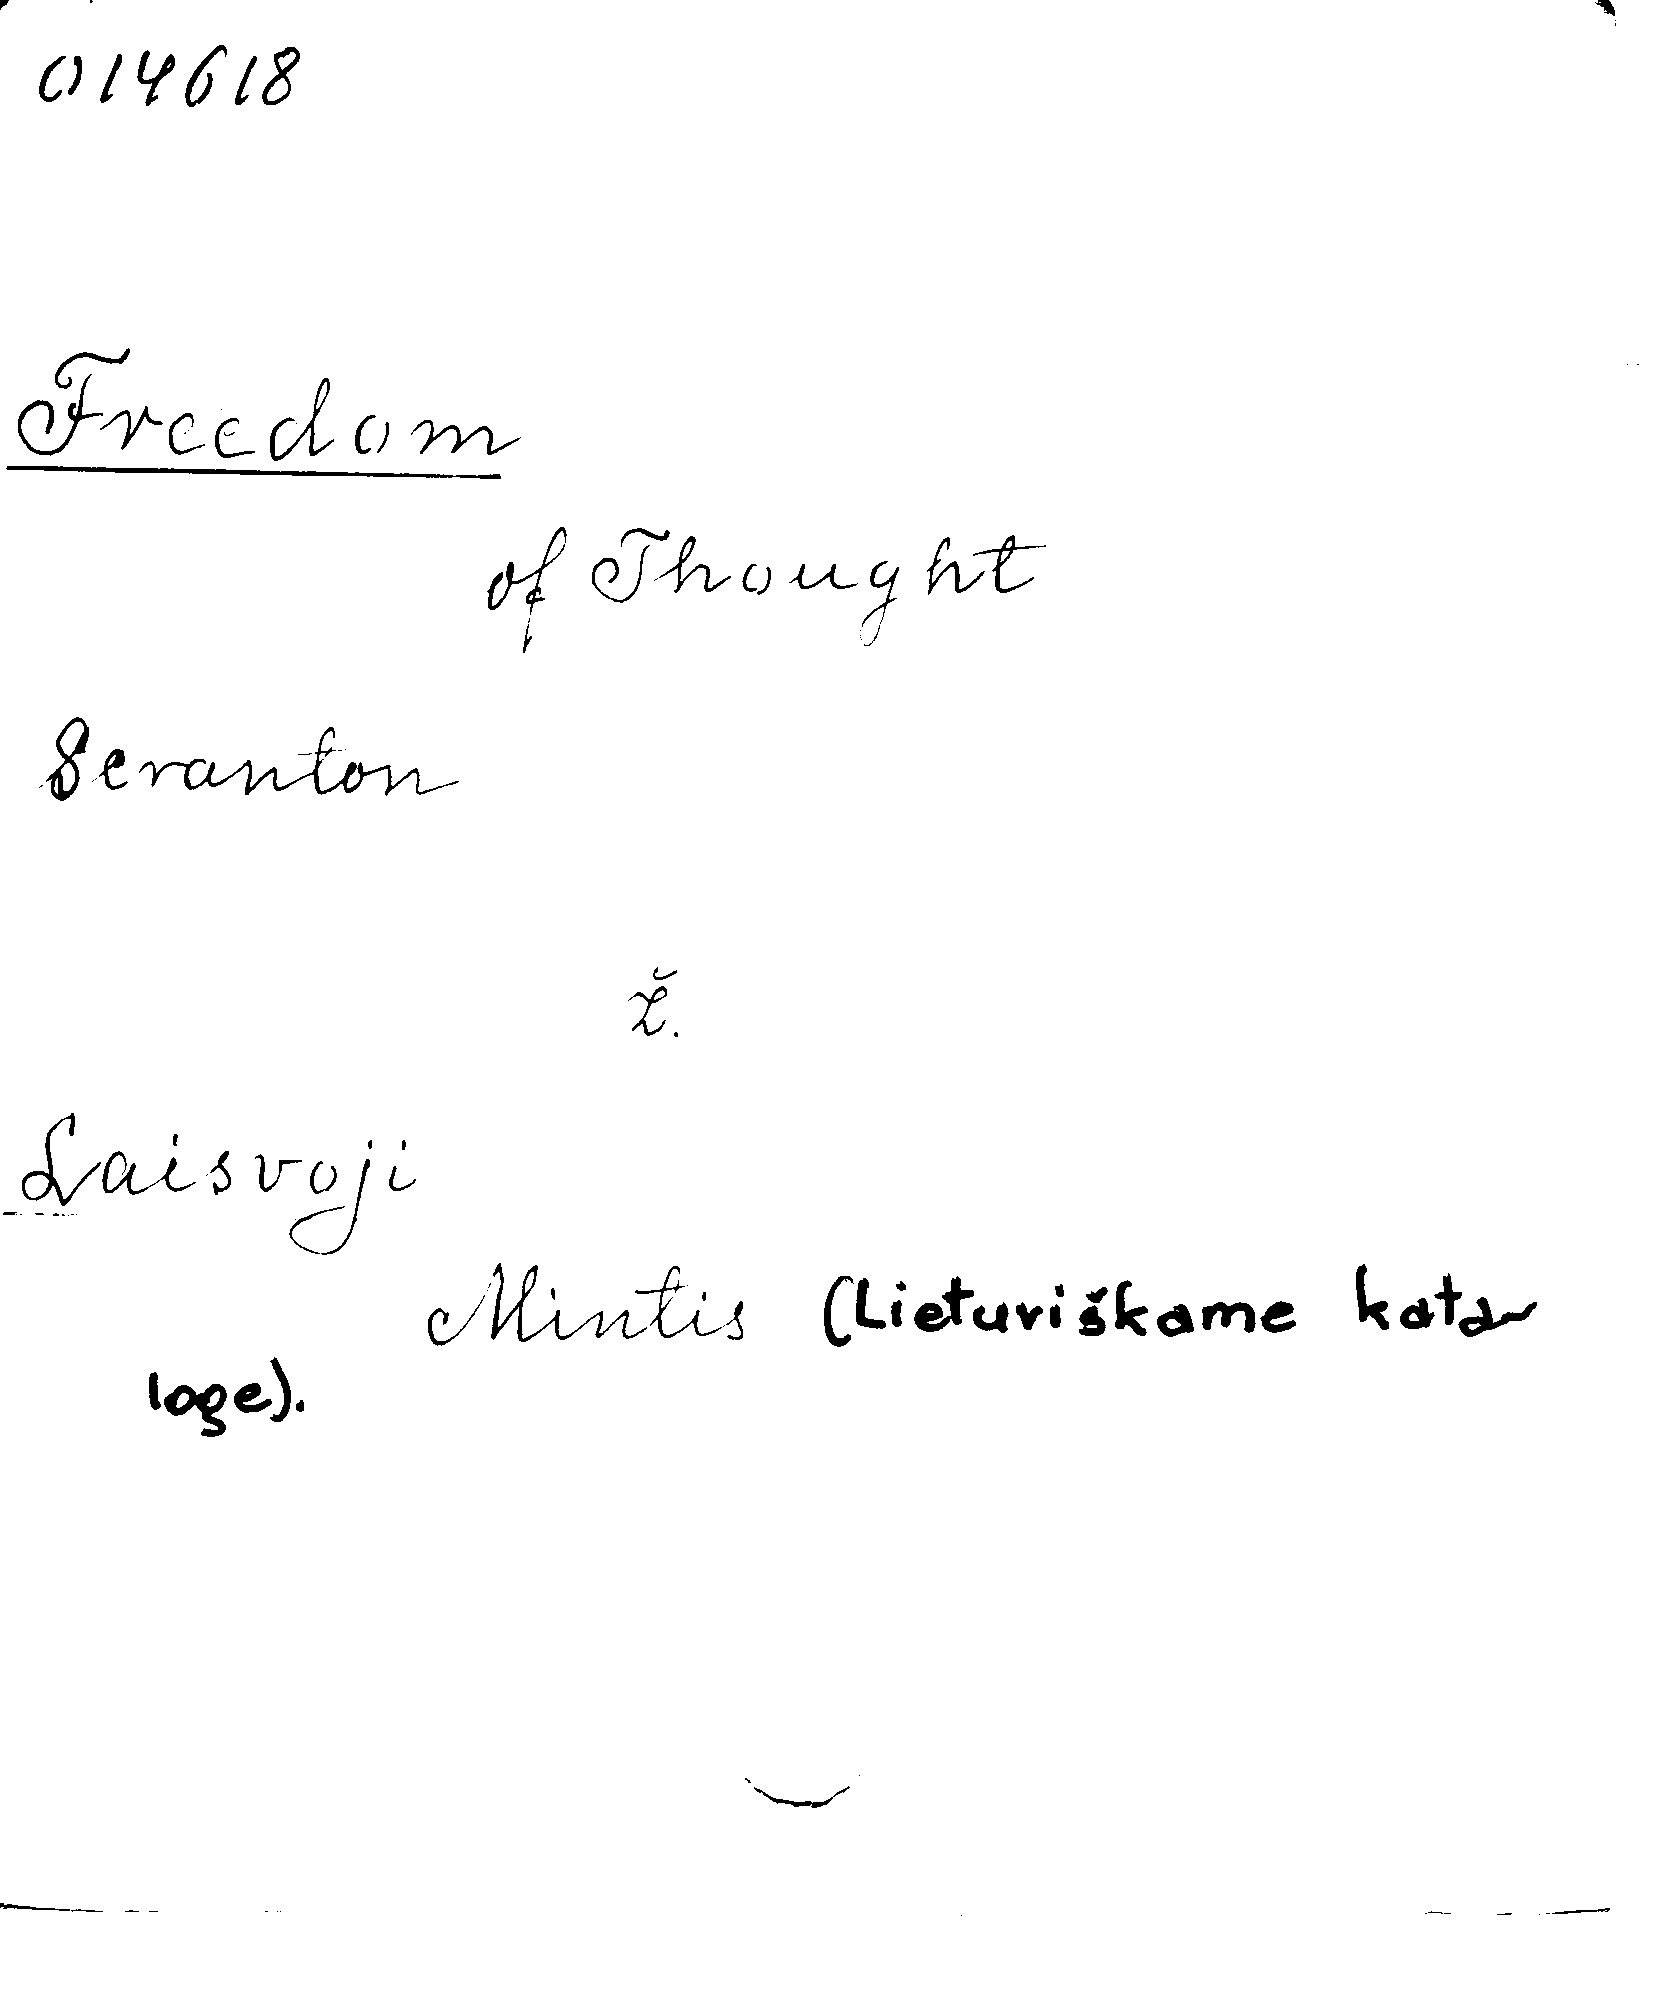 014618
Freedom
of Thought
Scranton
ž.
Laisvoji
Mintis (Lietuviškame kata-
loge).